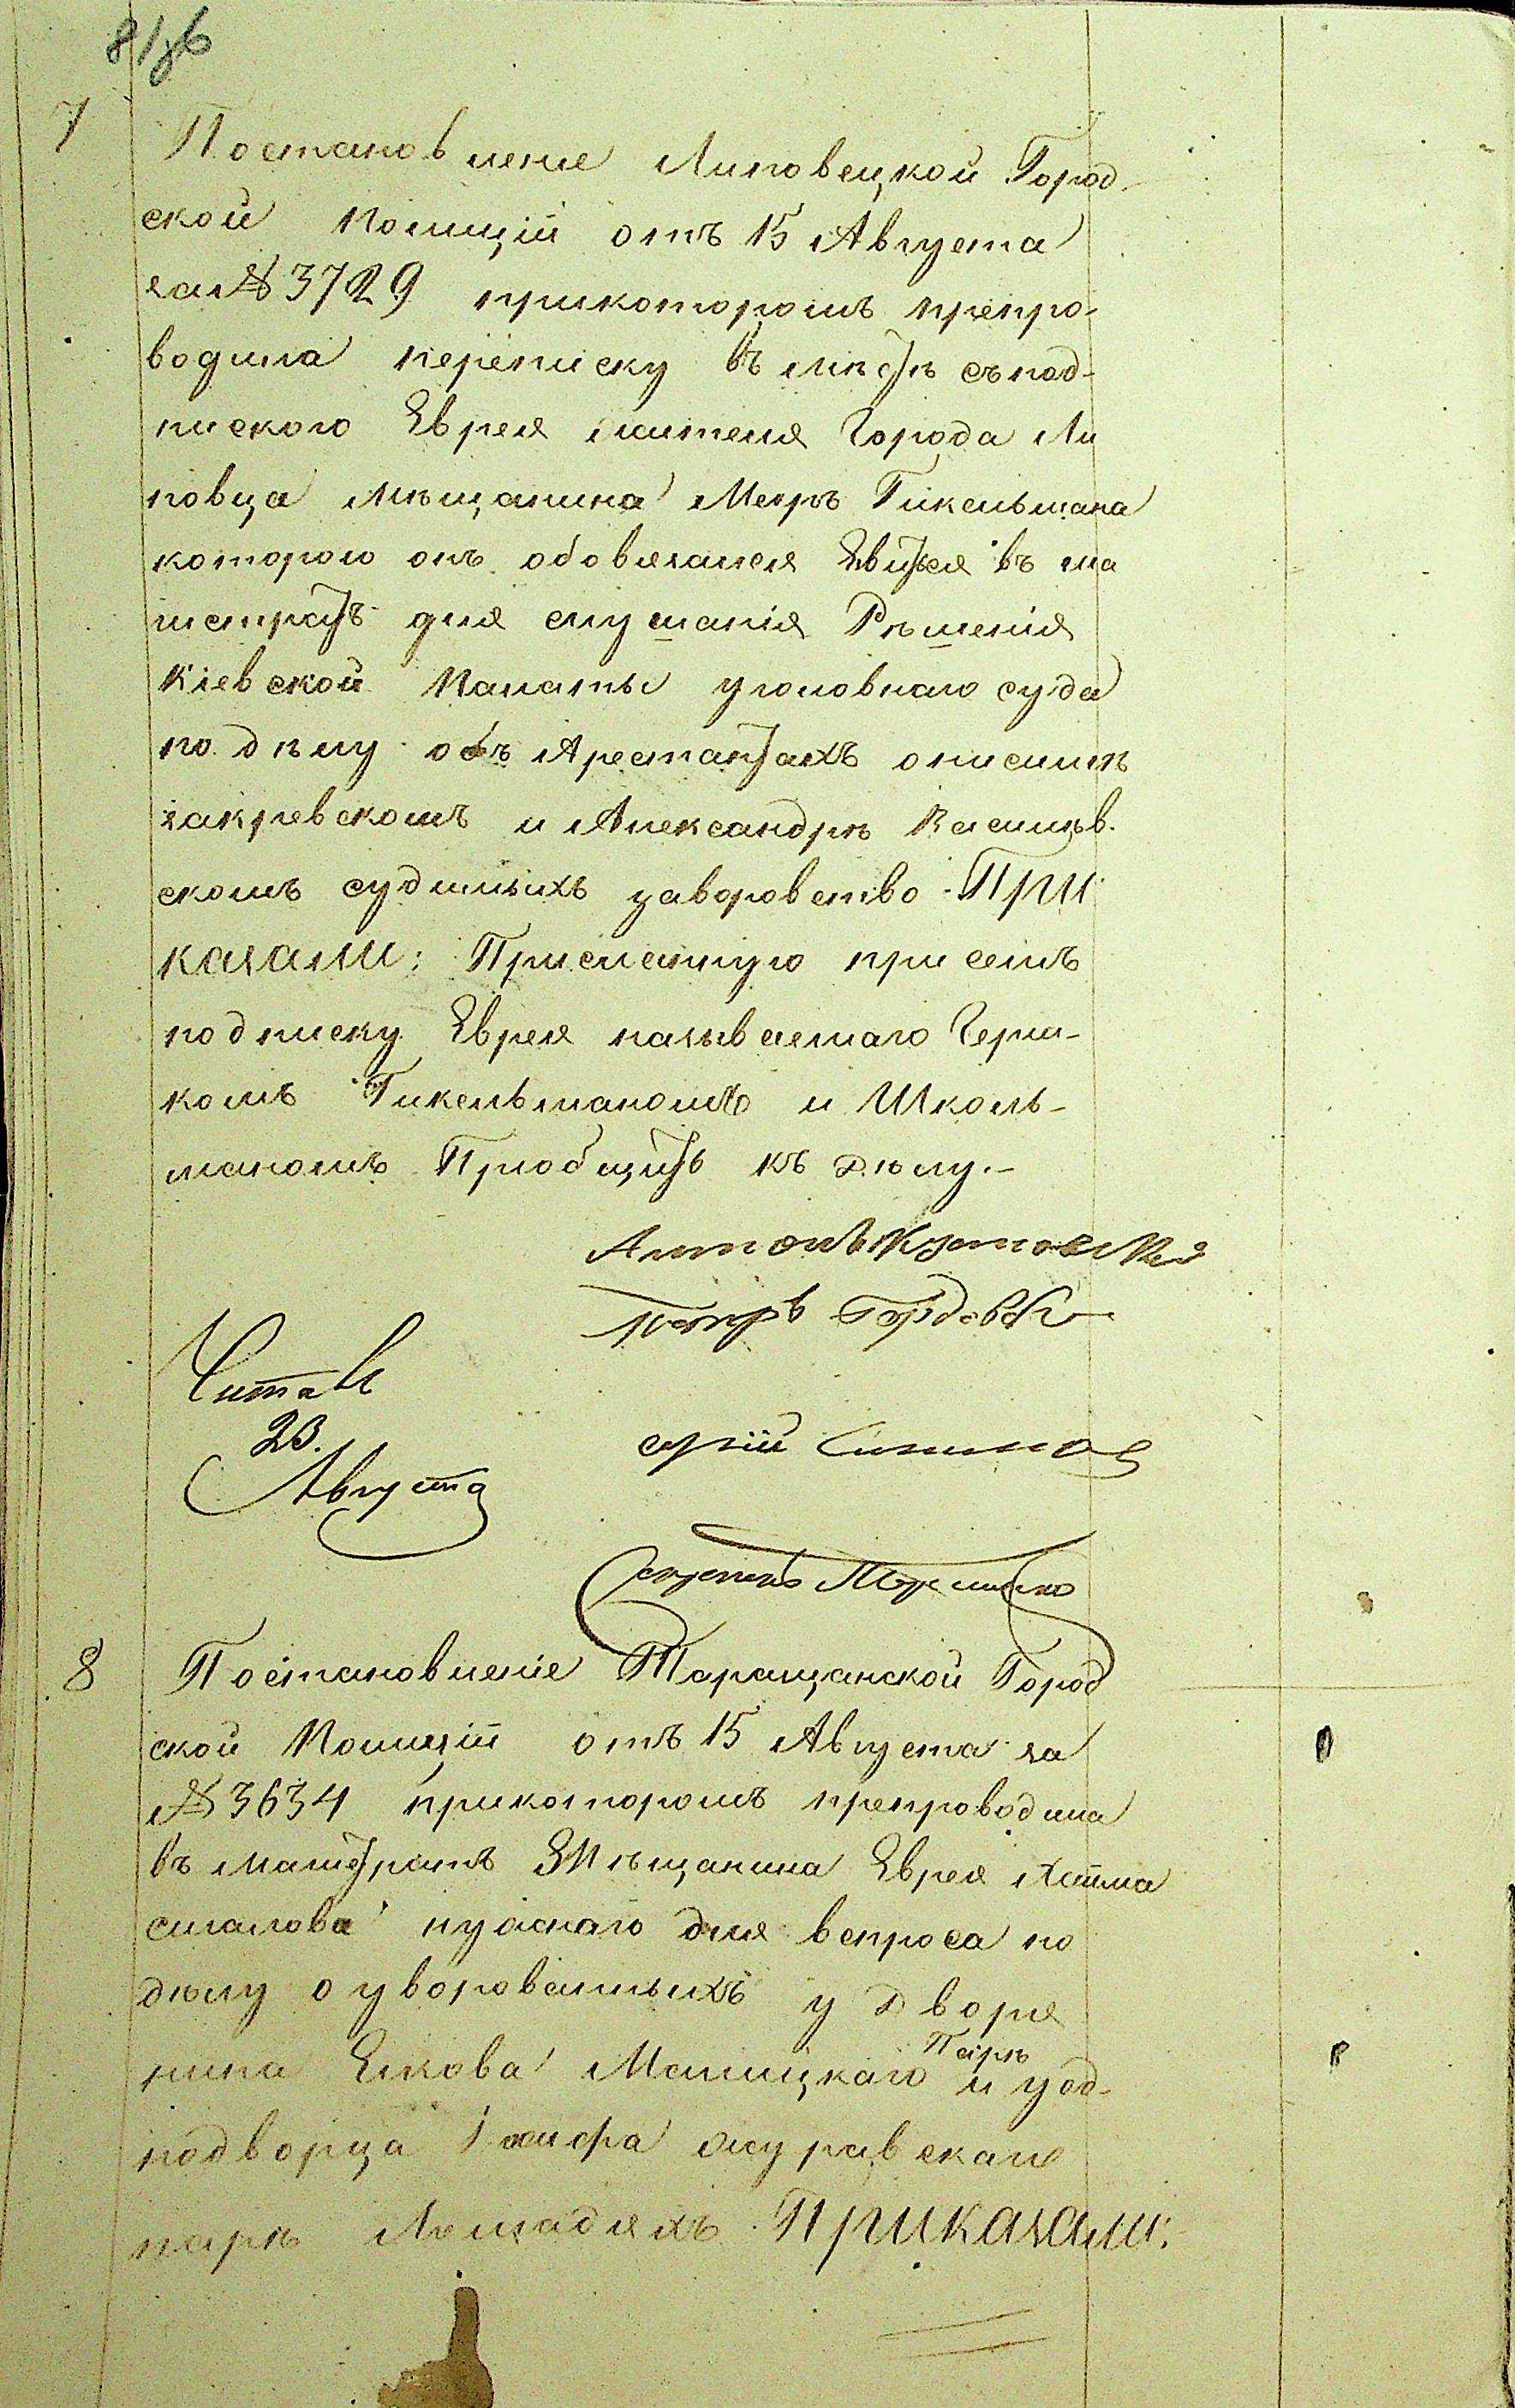 7
Постановленіе Липовецкой Город-
ской Полиціи отъ 15 Августа
за № 3729 прикоторомъ препро-
водила переписку вмѣстѣ съ под-
пискою Еврея жителя Города Ли
повца Мѣщанина Меяръ Гикельмана
которою онъ обовязался Евится въ ма
гистратъ для слушанія Рѣшенія
Кіевской Палаты уголовнаго суда
по дѣлу объ Арестантахъ
закревскомъ и Александрѣ Василев.
скомъ судимыхъ заворовство - При
казали: Присланную при семъ
подписку Еврея называемаго Герш-
комъ Гикельманомъ и Школь-
маномъ Пріобщить къ дѣлу.-
Антонъ
Петръ
Читалъ
23.
Августа
Секретарь
8
Постановленіе Таращанской Город
ской Полиціи отъ 15 Августа за
№ 3634 прикоторомъ препроводила
въ Магистратъ Мѣщанина Еврея
для вспроса по
дѣлу о уворованныхъ у Дворя
нина Якова Малицкаго парѣ и уод-
нодворца Іосифа журавскаго
парѣ Лошадяхъ Приказали: